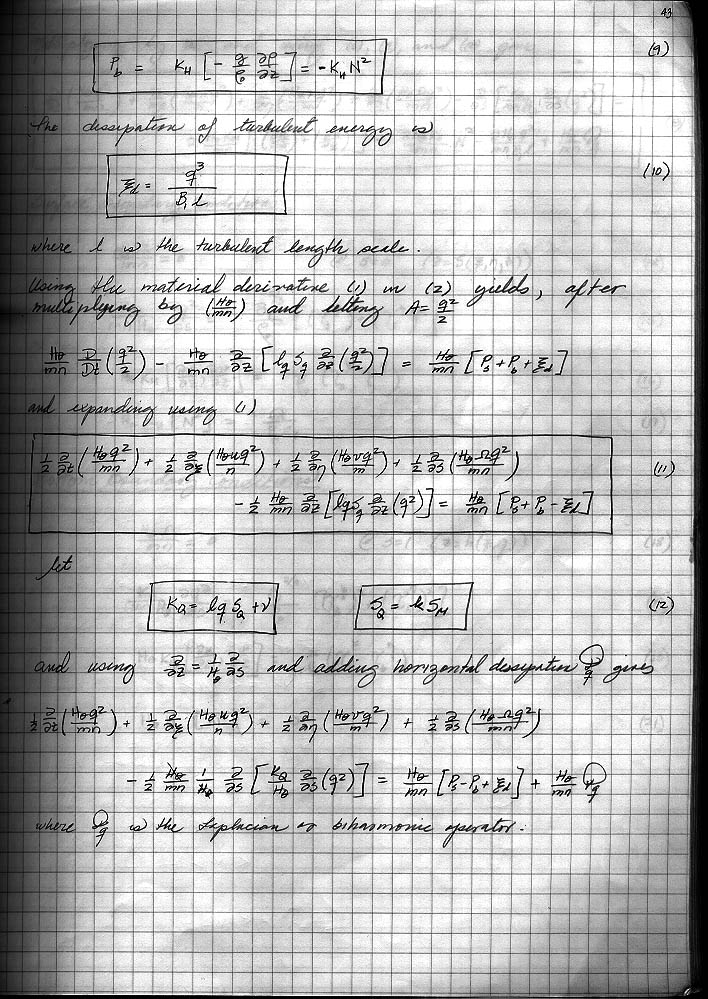 43
P_b = K_H [ - g/ρ₀ ∂ρ/∂z ] = -K_H N² (9)
The dissipation of turbulent energy is
ξ_d = q³ / B₁ l (10)
where l is the turbulent length scale.
Using the material derivative (1) in (2) yields, after
multiplying by (Hθ/mn) and letting A = q²/2
Hθ/mn D/Dt (q²/2) - Hθ/mn ∂/∂z [ lq S_q ∂/∂z (q²/2) ] = Hθ/mn [ P_s + P_b + ξ_d ]
and expanding using (1)
1/2 ∂/∂t (Hθ q²/mn) + 1/2 ∂/∂ξ (Hθ u q²/n) + 1/2 ∂/∂η (Hθ v q²/m) + 1/2 ∂/∂s (Hθ Ω q²/mn) (11)
- 1/2 Hθ/mn ∂/∂z [ lq S_q ∂/∂z (q²) ] = Hθ/mn [ P_s + P_b - ξ_d ]
let
K_Q = lq S_Q + ν S_Q = k S_M (12)
and using ∂/∂z = 1/Hθ ∂/∂s and adding horizontal dissipation D_q gives
1/2 ∂/∂t (Hθ q²/mn) + 1/2 ∂/∂ξ (Hθ u q²/n) + 1/2 ∂/∂η (Hθ v q²/m) + 1/2 ∂/∂s (Hθ Ω q²/mn)
- 1/2 Hθ/mn 1/Hθ ∂/∂s [ K_Q/Hθ ∂/∂s (q²) ] = Hθ/mn [ P_s - P_b + ξ_d ] + Hθ/mn D_q
where D_q is the Laplacian or biharmonic operator.